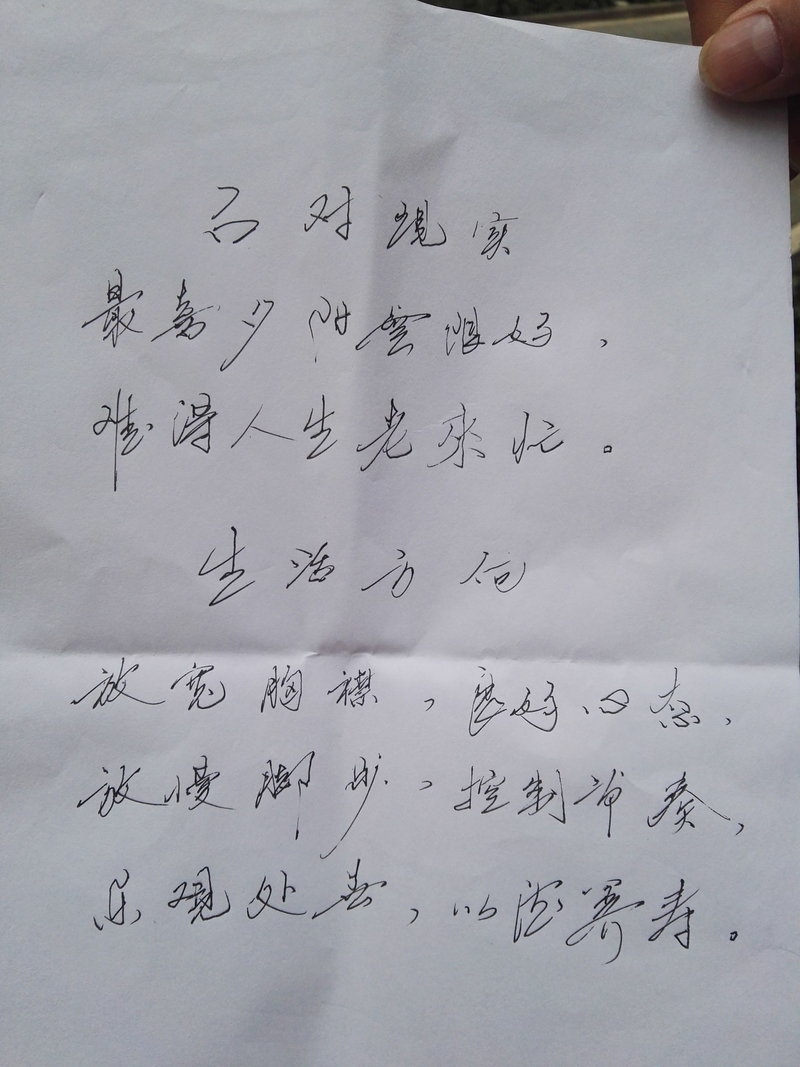 面对现实
最喜夕阳無限好，
难得人生老來忙。
生活方向
放宽胸襟，良好心态，
放慢脚步，控制节奏，
乐观处世，以德养寿。